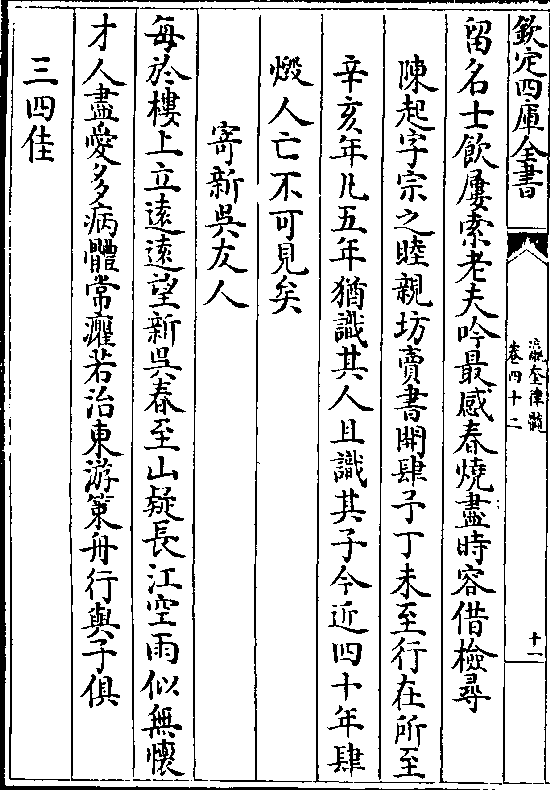 欽定四庫全書
瀛奎律髓
卷四十二
十一
留名士飲屢索老夫吟最感春燒盡時容借檢尋
陳起字宗之睦親坊賣書開肆予丁未至行在所至
辛亥年凡五年猶識其人且識其子今近四十年肆
燬人亡不可見矣
寄新吳友人
每於樓上立遠遠望新吳春至山疑長江空雨似無懷
才人盡愛多病體常癯若治東游䇿舟行與子俱
三四佳